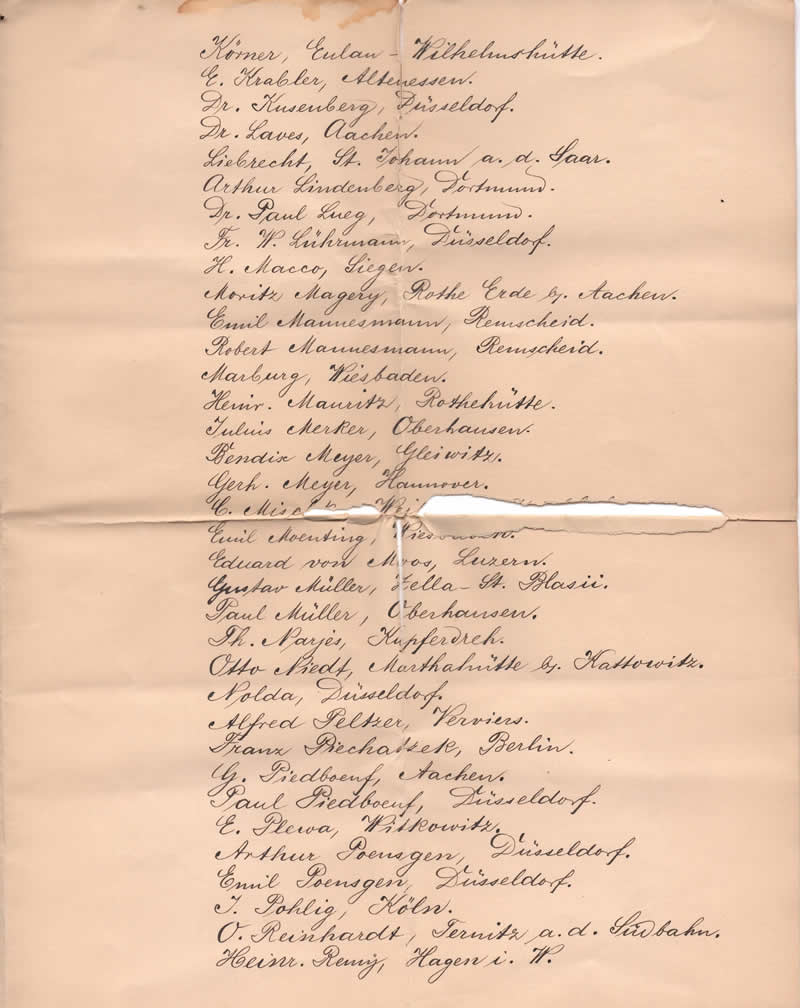 Körner, Eulau - Wilhelmshütte.
E. Krabler, Altenessen.
Dr. Kusenberg, Düsseldorf.
Dr. Laves, Aachen.
Liebrecht, St. Johann a. d. Saar.
Arthur Lindenberg, Dortmund.
Dr. Paul Lueg, Dortmund.
Fr. W. Lührmann, Düsseldorf.
H. Macco, Siegen.
Moritz Magery, Rothe Erde b/. Aachen.
Emil Mannesmann, Remscheid.
Robert Mannesmann, Remscheid.
Marburg, Wiesbaden.
Heinr. Mauritz, Rothehütte.
Julius Merker, Oberhausen.
Bendix Meyer, Gleiwitz.
Gerh. Meyer, Hannover.
C.
Emil Moenting, Wiesbaden.
Eduard von Moos, Luzern.
Gustav Müller, Zella - St. Blasii.
Paul Müller, Oberhausen.
Th. Narjes, Kupferdreh.
Otto Niedt, Marthahütte b/. Kattowitz.
Nolda, Düsseldorf.
Alfred Peltzer, Verviers.
Franz Piechatzek, Berlin.
G. Piedboeuf, Aachen.
Paul Piedboeuf, Düsseldorf.
E. Plewa, Witkowitz.
Arthur Poensgen, Düsseldorf.
Emil Poensgen, Düsseldorf.
J. Pohlig, Köln.
O. Reinhardt, Ternitz a. d. Südbahn.
Heinr. Remy, Hagen i. W.